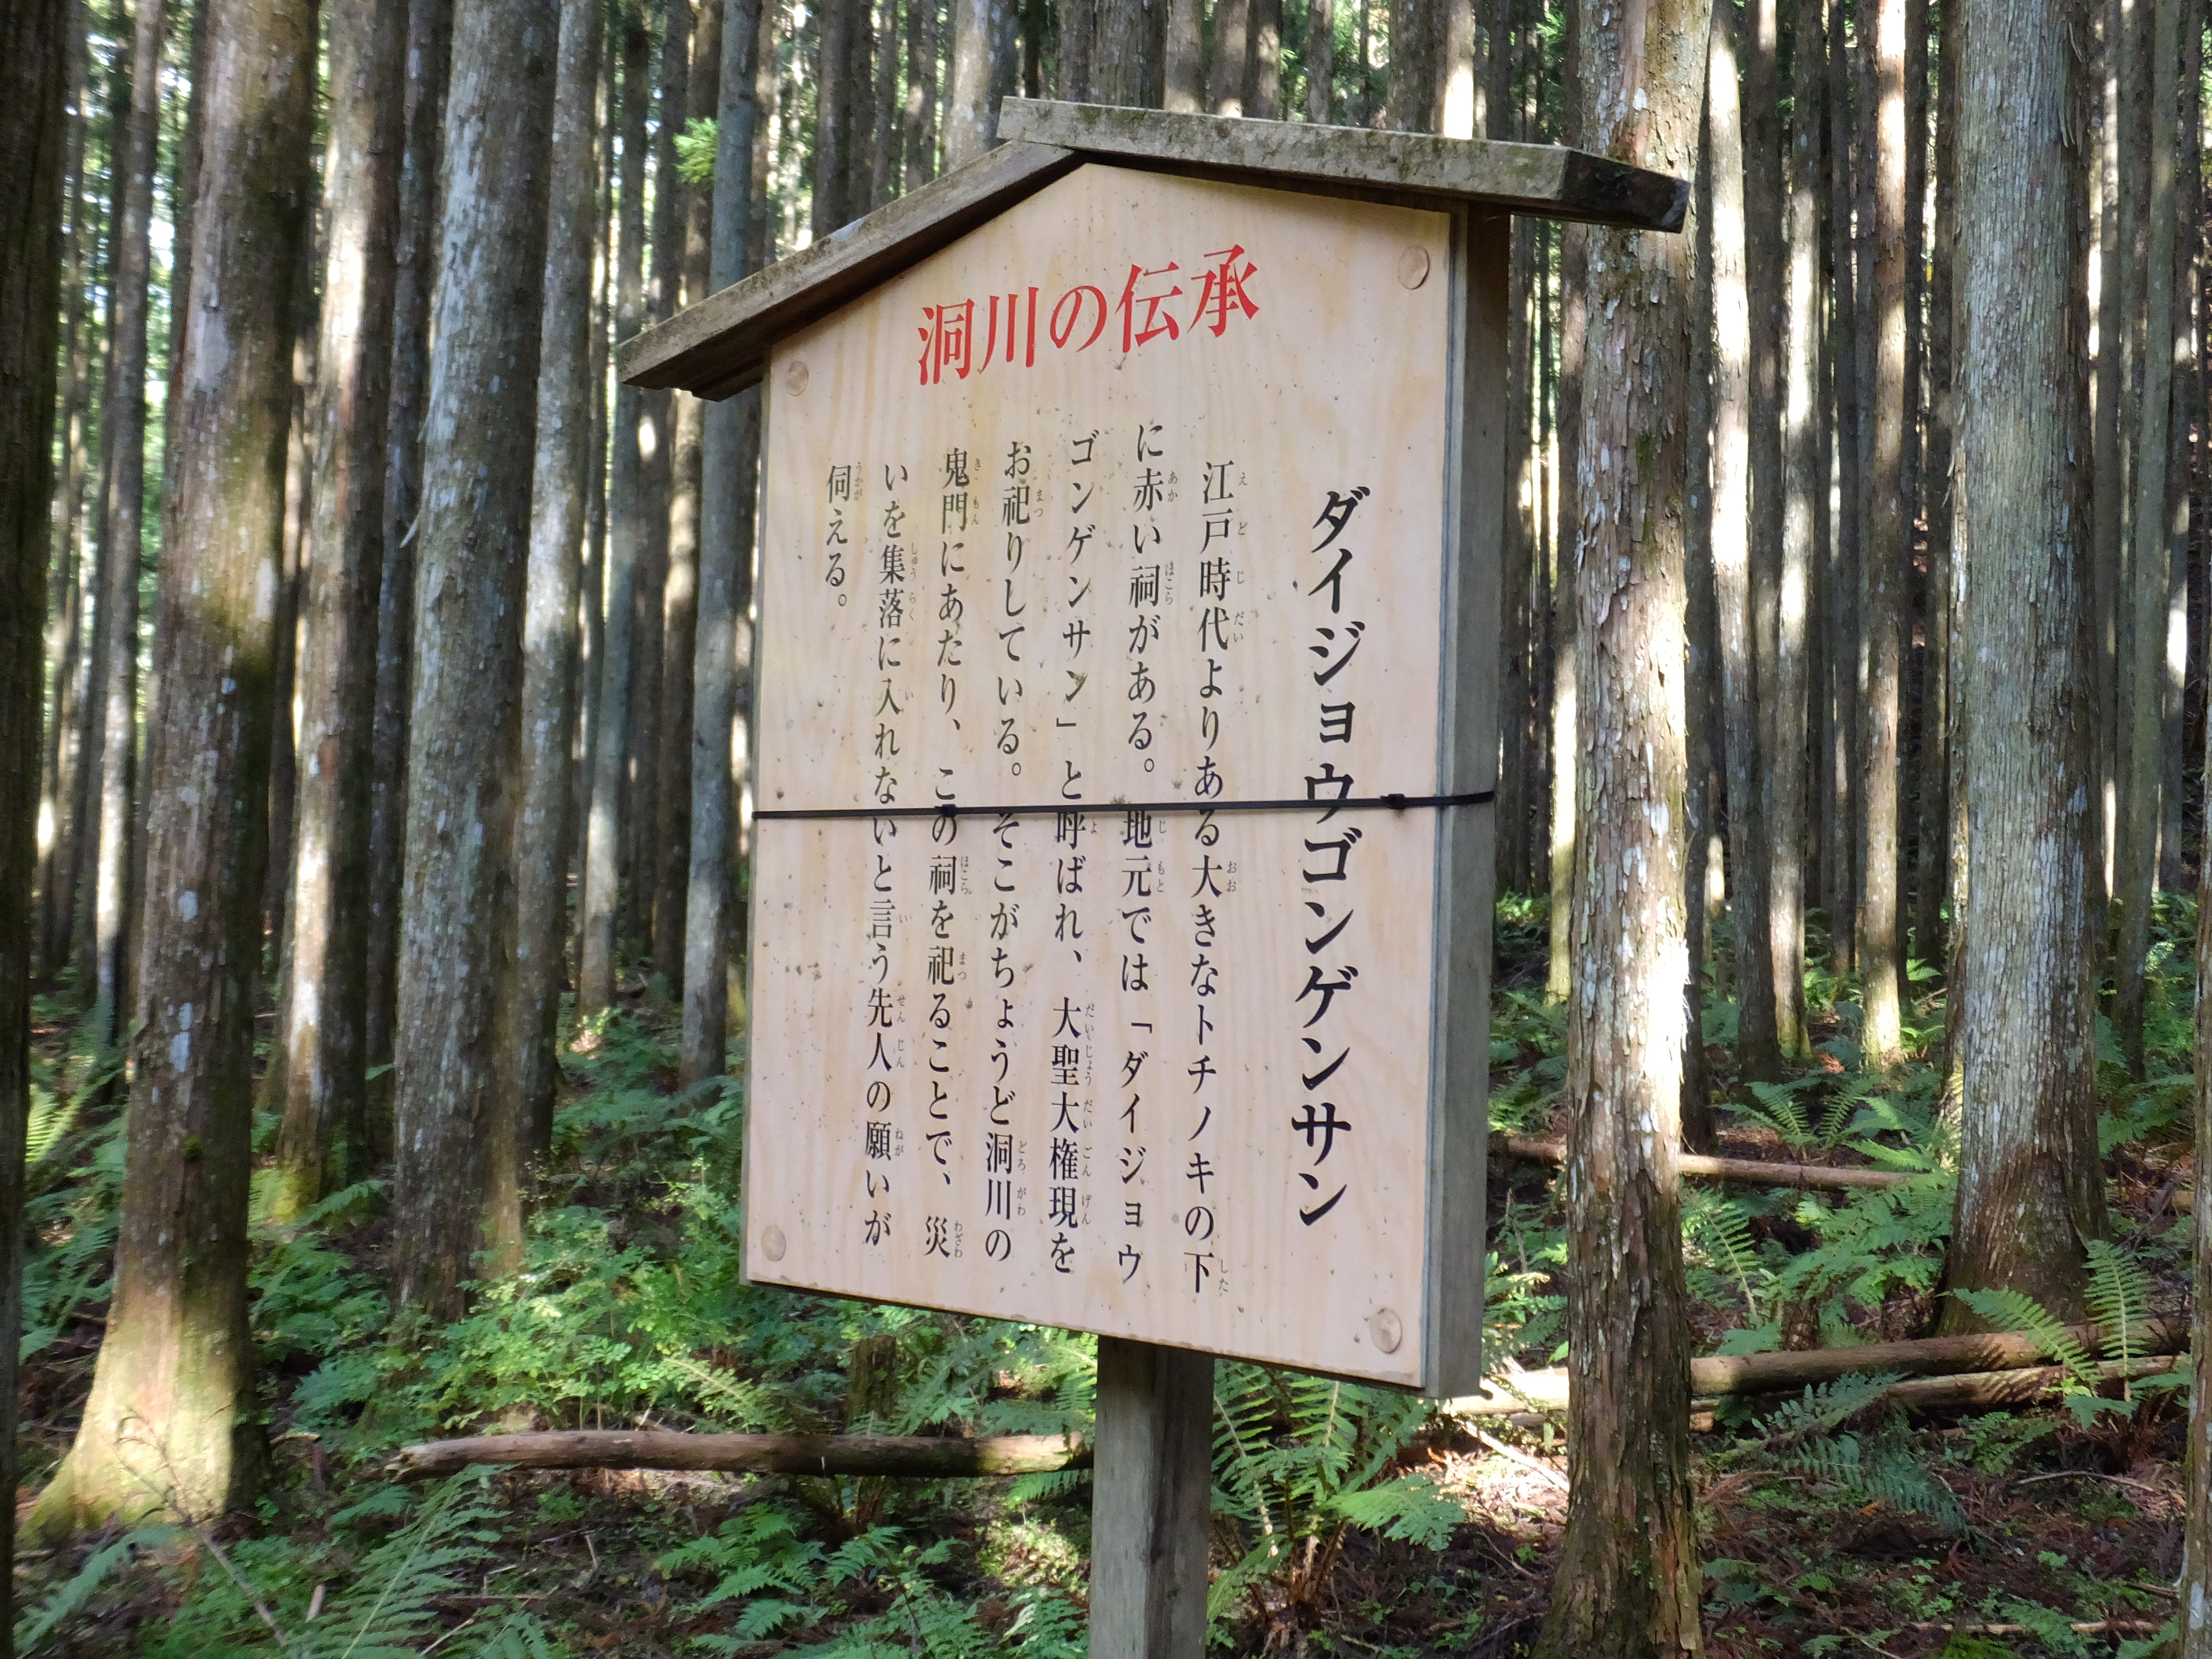 洞川の伝承
ダイジョウゴンゲンサン
江戸時代よりある大きなトチノキの下
に赤い祠がある。地元では「ダイジョウ
ゴンゲンサン」と呼ばれ、大聖大権現を
お祀りしている。そこがちょうど洞川の
鬼門にあたり、この祠を祀ることで、災
いを集落に入れないと言う先人の願いが
伺える。